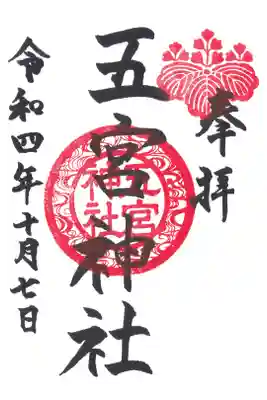 奉拝
五宮神社
令和四年十月七日
宮
神社